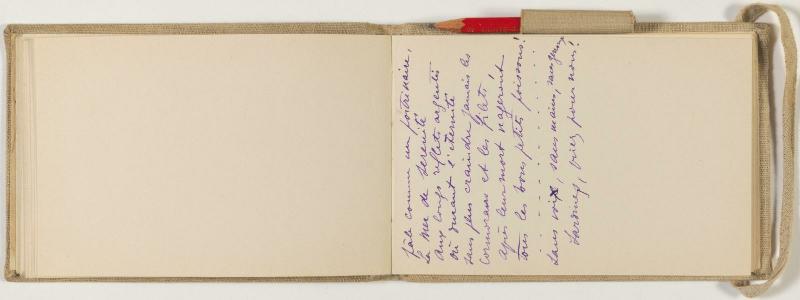 pâle comme un poitrinaire,
la Mer de Serenité
aux longs reflets argentés
où durant l'éternité
sans plus craindre jamais les
cormorans et les filets,
après leur mort nageront
tous les bons petits poissons!
. . . . . . . . . . . . . .
Sans voix, sans mains, sans genoux
Sardines, priez pour nous!